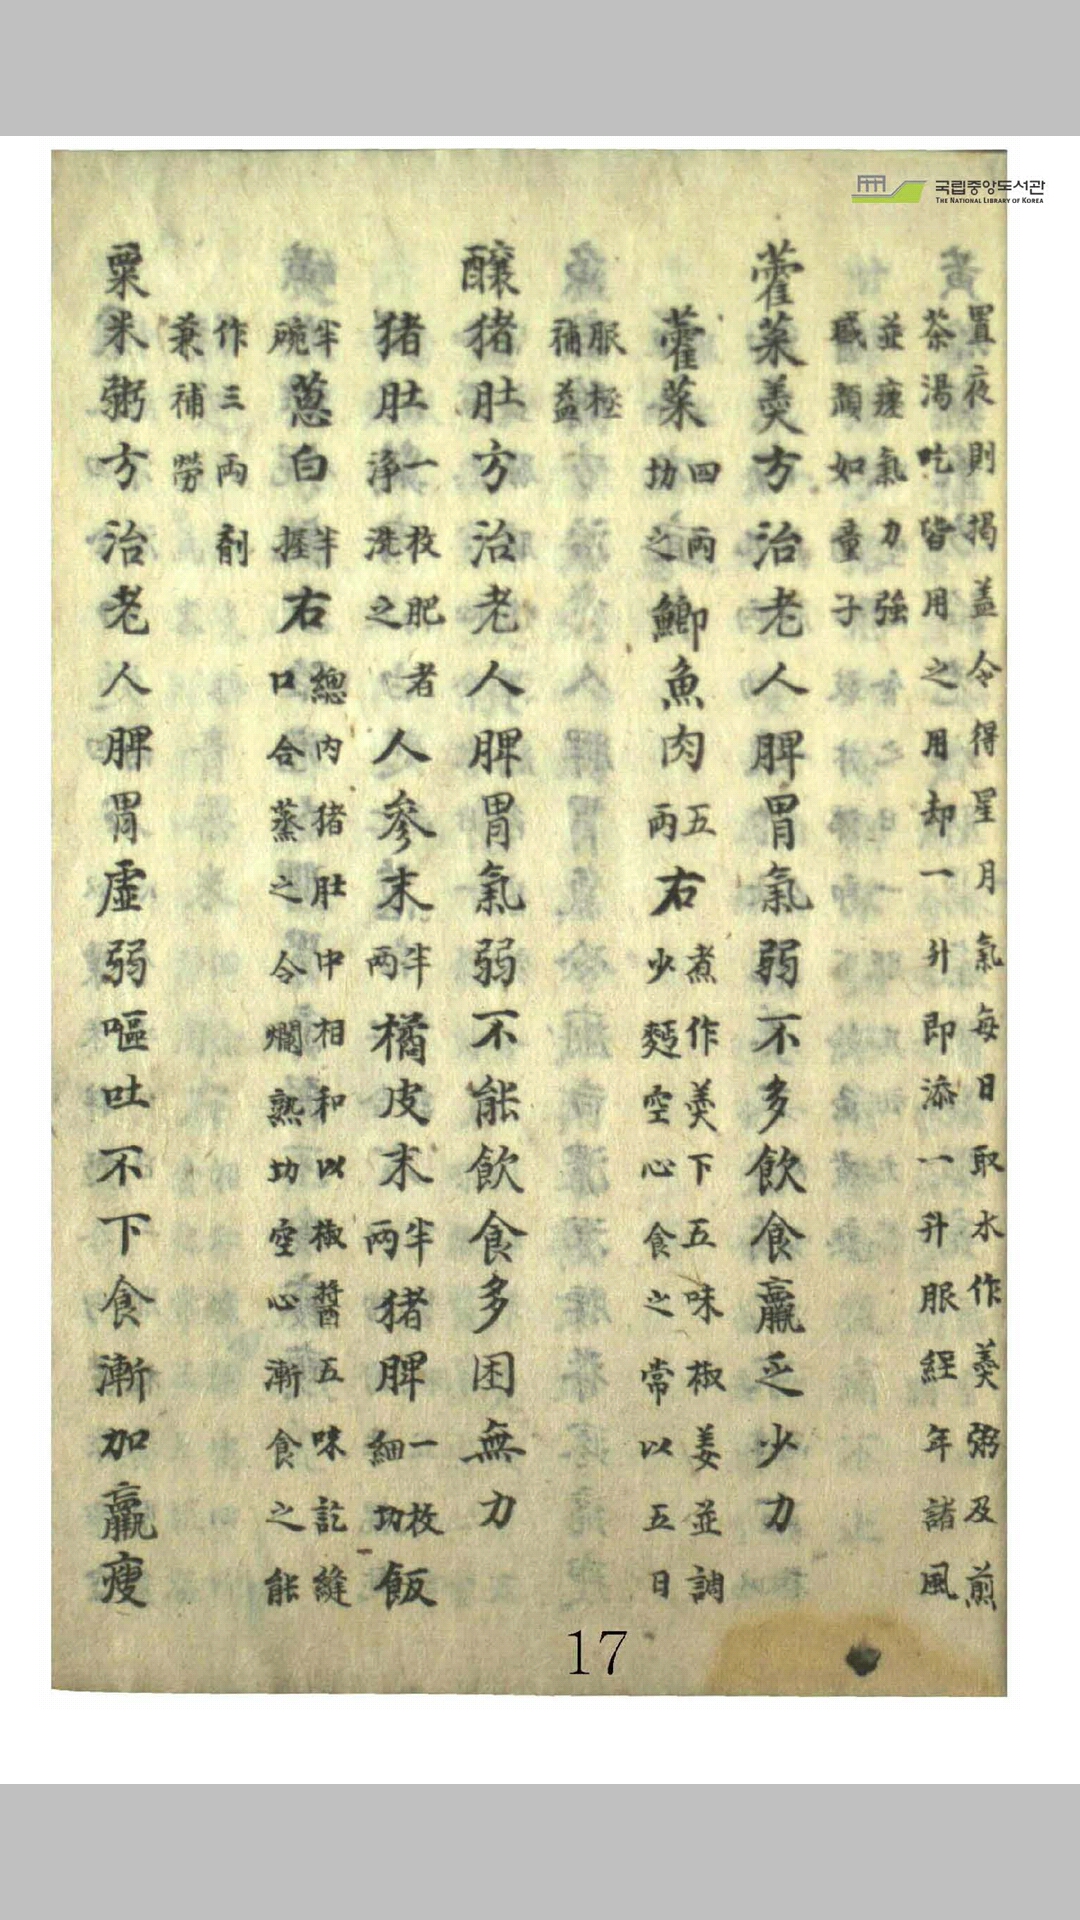 국립중앙도서관
THE NATIONAL LIBRARY OF KOREA
置夜則揭盖令得星月氣每日取水作羹粥及煎
茶湯吃皆用之用却一升即添一升服經年諸風
並瘥氣力強
盛顔如童子
藿菜羹方治老人脾胃氣弱不多飲食羸乏少力
藿菜四兩切之鯽魚肉五兩右煮作羹下五味椒姜並調少麪空心食之常以五日
服極補益
釀猪肚方治老人脾胃氣弱不能飲食多困無力
猪肚一枚肥者淨洗之人參末半兩橘皮末半兩猪脾一枚細切飯
半碗蔥白半握右總內猪肚中相和以椒醬五味訖縫口合蒸之令爛熟切空心漸食之能
作三兩劑兼補勞
粟米粥方治老人脾胃虛弱嘔吐不下食漸加羸瘦
17